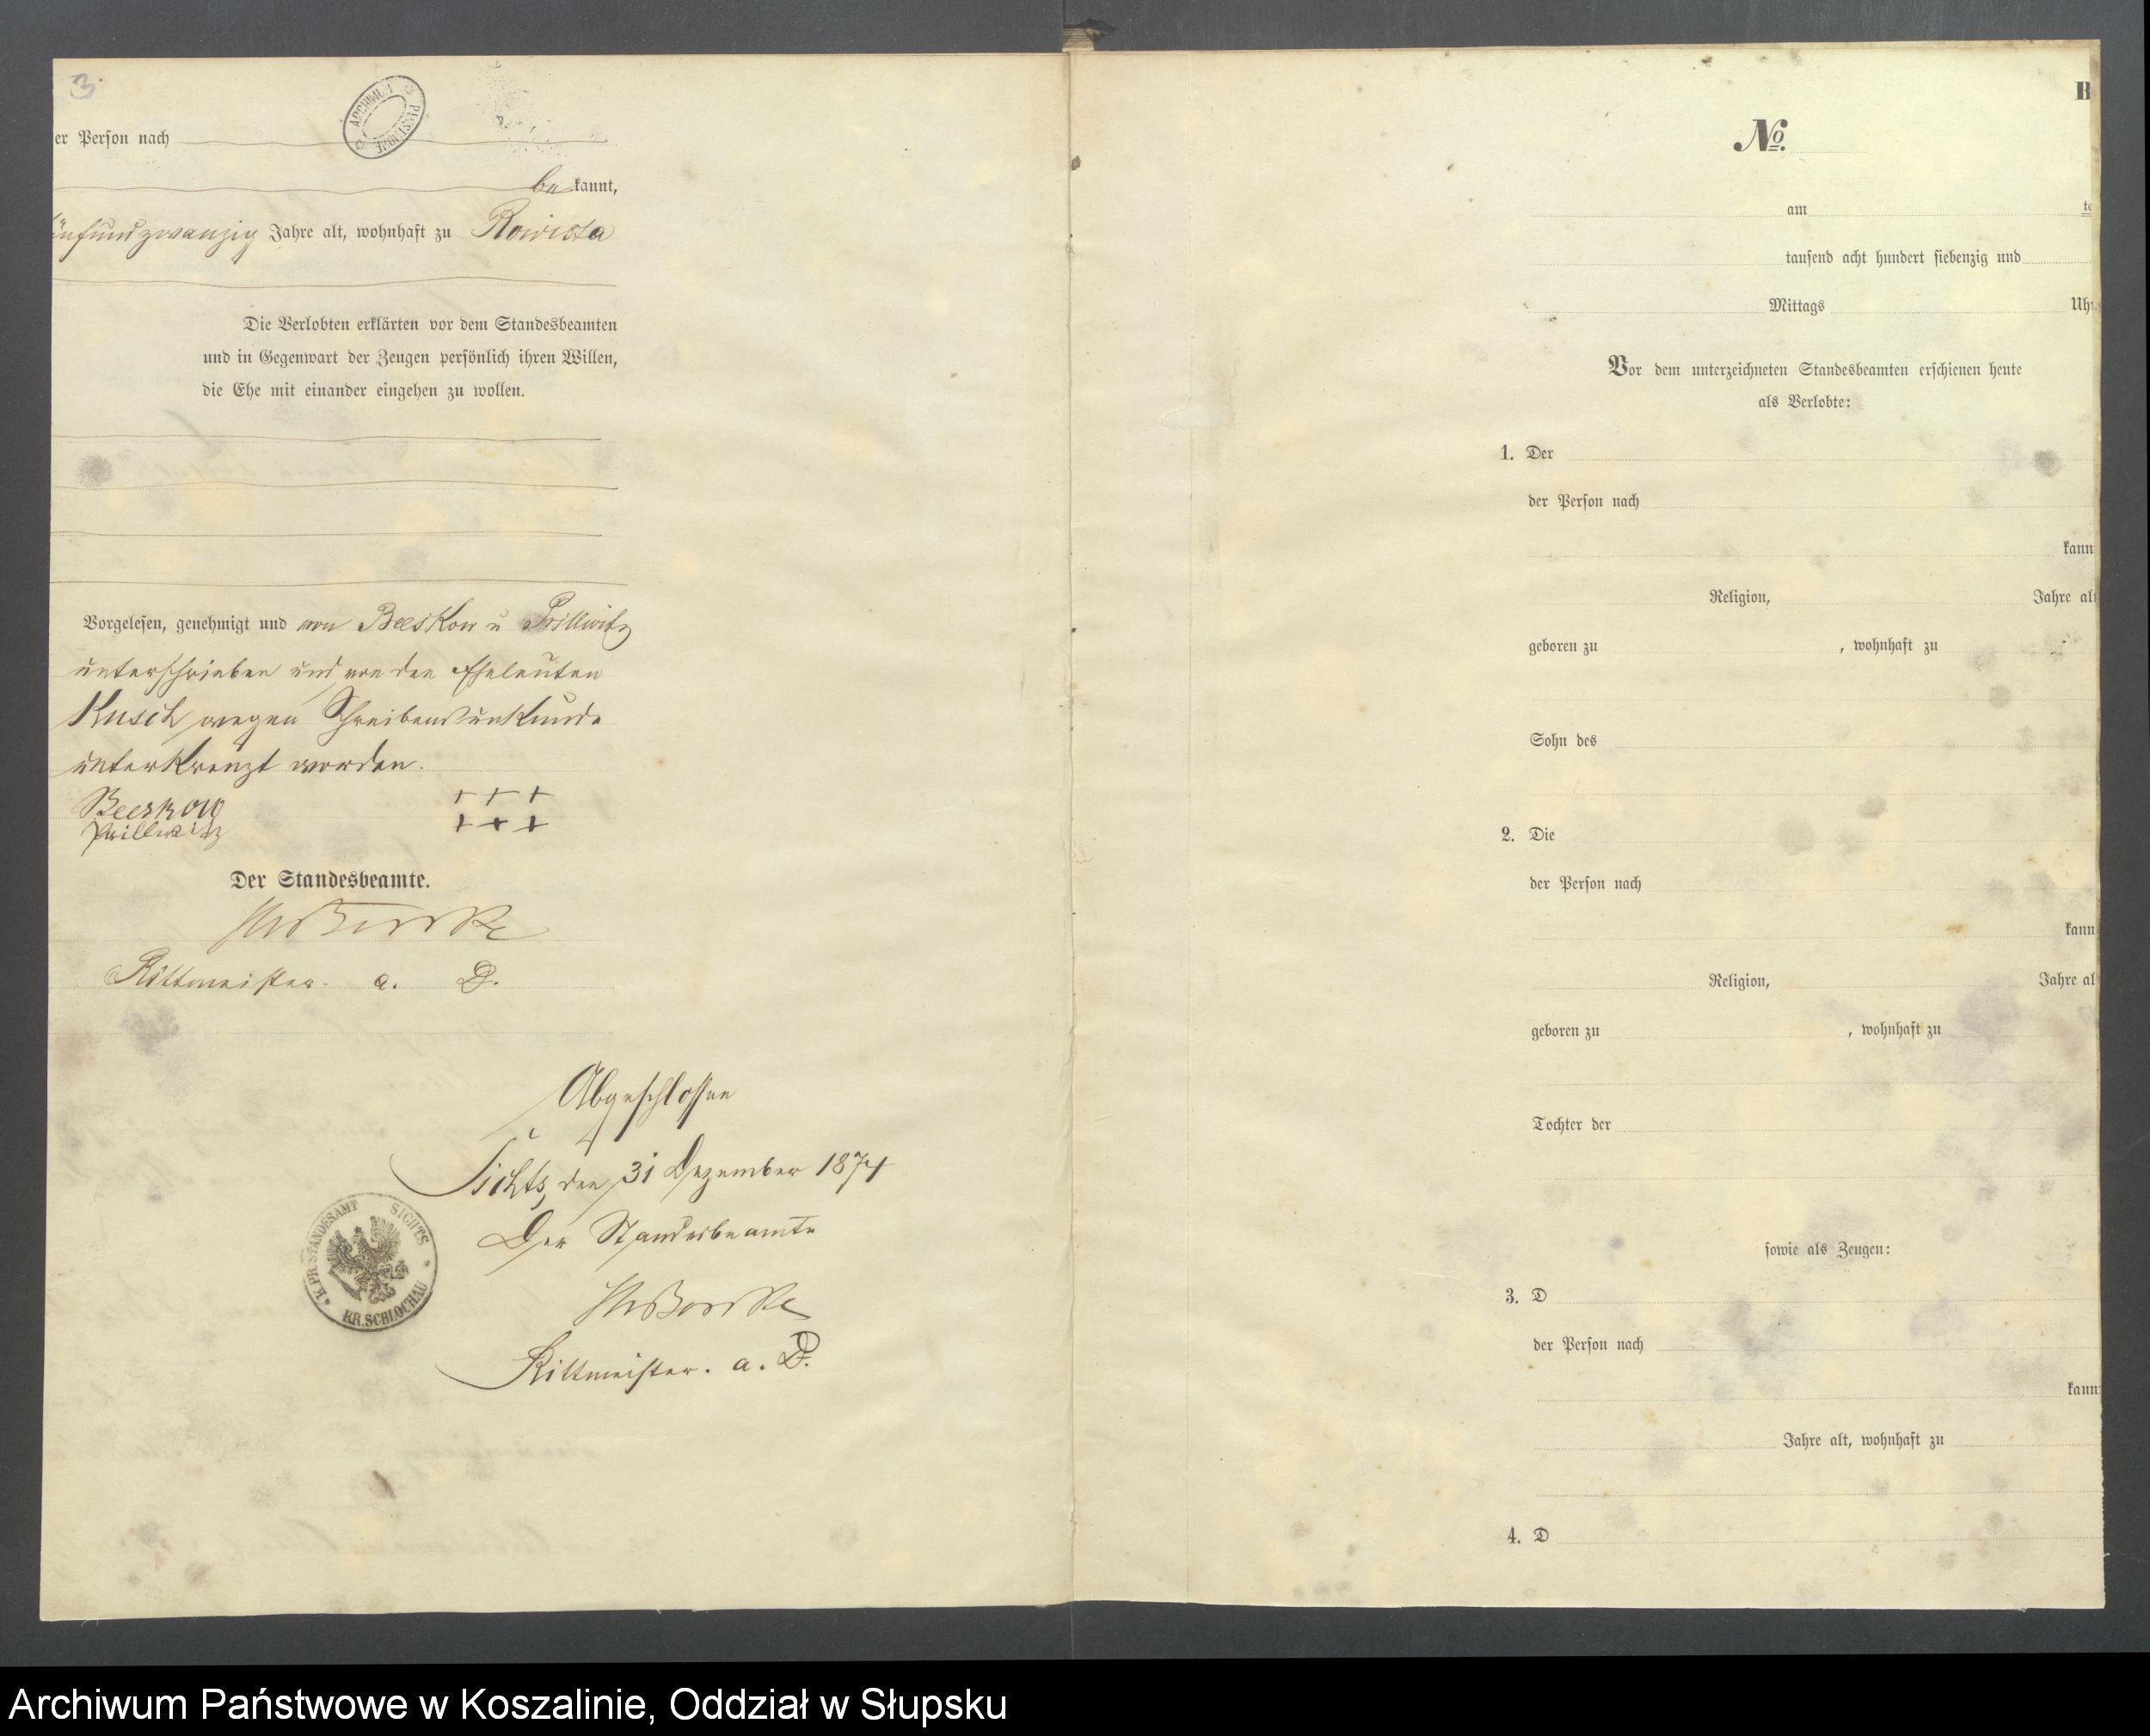 3.
er Person nach
ARCHIWUM PAŃSTWOWE
be kannt,
ünfundzwanzig Jahre alt, wohnhaft zu Rowista
Die Verlobten erklärten vor dem Standesbeamten
und in Gegenwart der Zeugen persönlich ihren Willen,
die Ehe mit einander eingehen zu wollen.
Vorgelesen, genehmigt und von Beeskow u Prillwitz
unterschrieben und von den Eheleuten
Kusch wegen Schreibensunkunde
unterkreuzt worden.
Beeskow +++
Prillwitz +++
Der Standesbeamte.
Rittmeister. a. D.
Abgeschlossen
Sichts, den 31 Dezember 1874
Der Standesbeamte
K. PR. STANDESAMT SICHTS
KR. SCHLOCHAU
Rittmeister. a. D.
B
№
am te
tausend acht hundert siebenzig und
Mittags Uhr
Vor dem unterzeichneten Standesbeamten erschienen heute
als Verlobte:
1. Der
der Person nach
kann
Religion, Jahre alt
geboren zu , wohnhaft zu
Sohn des
2. Die
der Person nach
kann
Religion, Jahre al
geboren zu , wohnhaft zu
Tochter der
sowie als Zeugen:
3. D
der Person nach
kann
Jahre alt, wohnhaft zu
4. D
Archiwum Państwowe w Koszalinie, Oddział w Słupsku